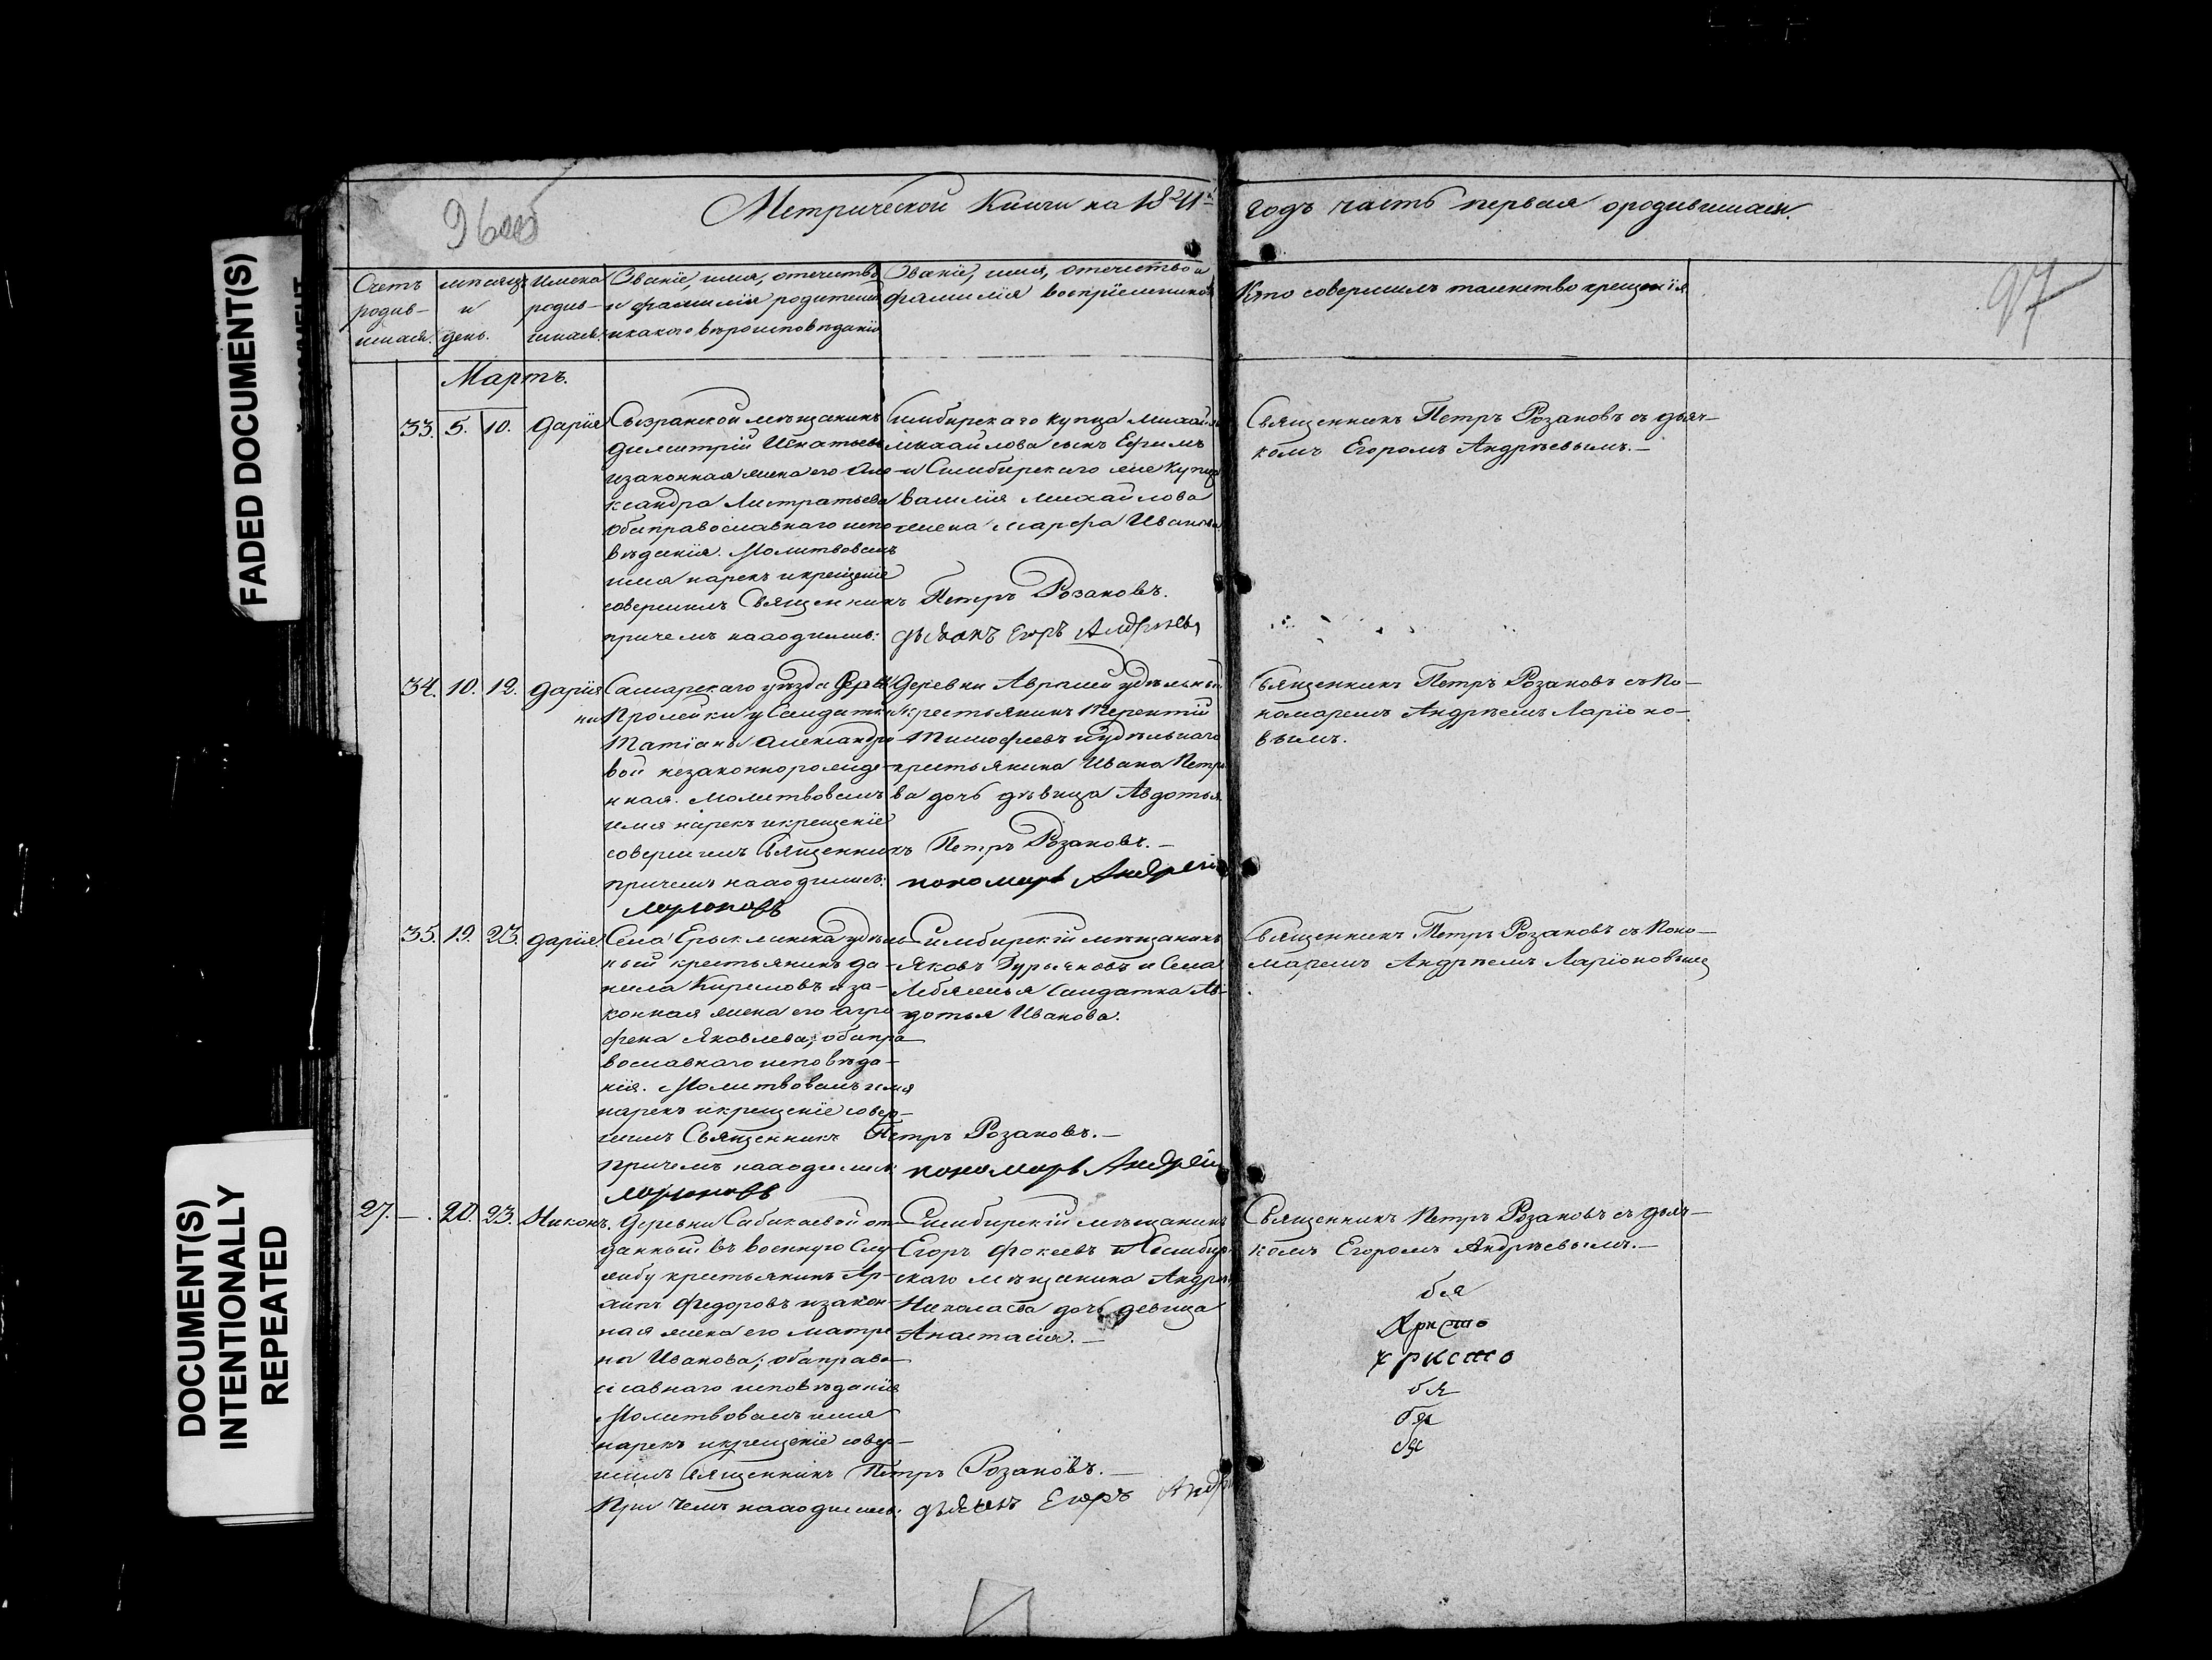 FADED DOCUMENT(S)
DOCUMENT(S)
INTENTIONALLY
REPEATED
Метрической Книги на 1841й годъ часть первая ородившихся.
97
Счетъ родив-шихся.
мѣсяцъ и день.
Имена родив-шихся.
Званіе, имя, отечество
и фамилія родителей
и какого вѣроисповѣданія
Званіе, имя, отечество и
фамилія воспріемниковъ
Кто совершилъ таинство крещенія
Мартъ.
33. 5. 10. Дарія
Сызранской мѣщанинъ
Димитрій Игнатьевъ
и законная жена его Але-
ксандра Листратьева
оба православнаго испо
вѣданія. Молитвовалъ
имя нарекъ и крещеніе
совершилъ Священникъ Петръ Розановъ.
при чемъ находились: дьячокъ Егоръ Андреевъ
Симбирскаго купца Михайла
Михайлова сынъ Ефимъ
и Симбирскаго же купца
Василія Михайлова
жена Марфа Иванова
Священникъ Петръ Розановъ съ дьяч-
комъ Егоромъ Андрѣевымъ.-
34. 10. 12. Дарія
Самарскаго уѣзда Дерев
ни Пролейки у Салдатки
Татіаны Александро
вой незаконнорожде-
нная. Молитвовалъ
имя нарекъ и крещеніе
совершилъ Священникъ Петръ Розановъ.-
при чемъ находились: пономарь Андрей
Ларионовъ
Деревни Аврали удѣльный
крестьянинъ Терентій
Тимофеевъ и удѣльнаго
крестьянина Ивана Петро
ва дочь дѣвица Авдотья
Священникъ Петръ Розановъ съ По-
номаремъ Андрѣемъ Ларіоно-
вымъ.
35. 19. 23. Дарія.
Села Ерыклинска удѣль
ный крестьянинъ Да-
нила Кириловъ и за-
конная жена его Агра
фена Яковлева; оба пра
вославнаго исповѣда-
нія. Молитвовалъ имя
нарекъ и крещеніе совер-
шилъ Священникъ Петръ Розановъ.-
при чемъ находились пономарь Андрей
Ларионовъ
Симбирскій мѣщанинъ
Яковъ Гурьяновъ и Села
Лебяжья Салдатка Ав-
дотья Иванова.
Священникъ Петръ Розановъ съ Поно-
маремъ Андрѣемъ Ларіоновымъ
27. -. 20. 23. Никонъ.
Деревни Сабакаевой от-
данный въ военную Слу-
жбу крестьянинъ Ар-
хипъ Федоровъ и закон-
ная жена его Матре
на Иванова; оба право
славнаго исповѣданія
Молитвовалъ имя
нарекъ и крещеніе совер-
шилъ Священникъ Петръ Розановъ.-
При чемъ находились: дьячокъ Егоръ Андре
Симбирскій мѣщанинъ
Егоръ Фокеевъ и Симбир
скаго мѣщанина Андрея
Николаева дочь девица
Анастасія.-
Священникъ Петръ Розановъ съ дьяч-
комъ Егоромъ Андрѣевымъ.-
бя
Христо
христо
бя